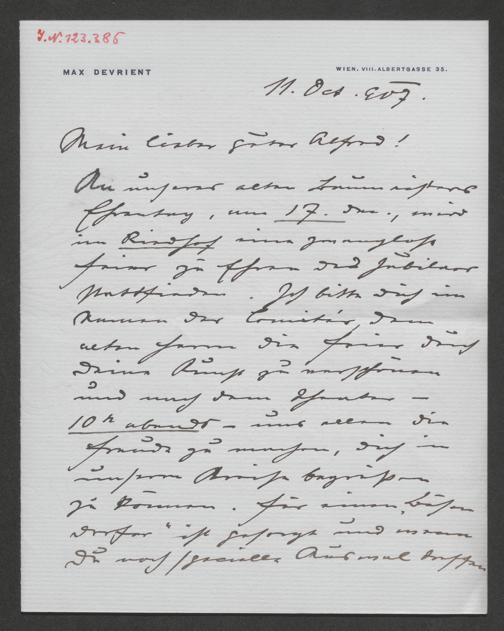 J.N. 123.386
MAX DEVRIENT
WIEN, VIII. ALBERTGASSE 35.
11. Oct. 907.
Mein lieber guter Alfred!
An unseres alten Baumeisters
Ehrentag, am 17. dss., wird
im Riedhof eine zwanglose
Feier zu Ehren des Jubilars
stattfinden. Ich bitte dich im
Namen des Comités, dem
alten Herrn die Feier durch
Deine Kunst zu verschönen
und nach dem Theater –
10 h abends – uns allen die
Freude zu machen, dich in
unserm Kreise begrüßen
zu können. Für einen „Bösen
dorfer“ ist gesorgt und wenn
Du noch specielle Auswahl treffen